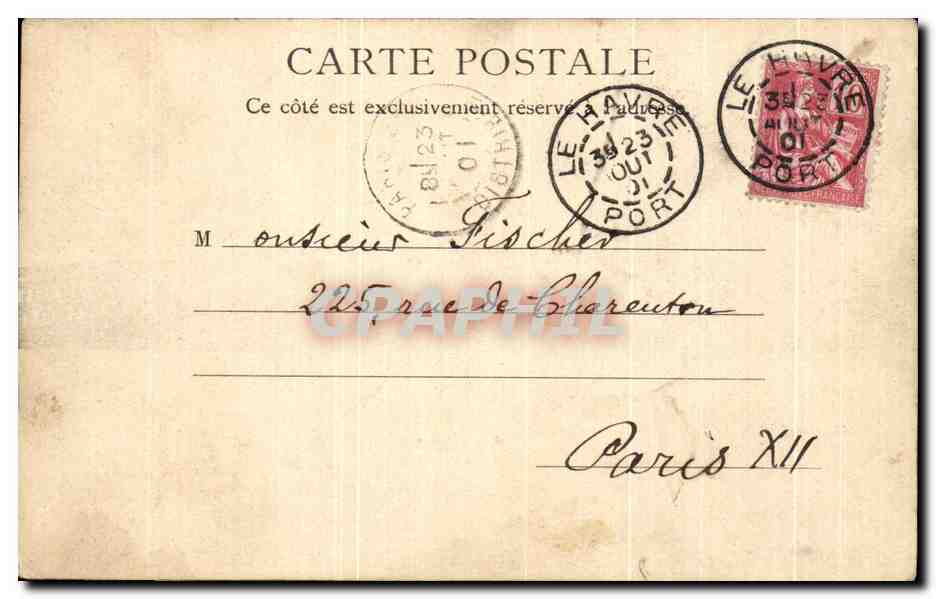 CARTE POSTALE
Ce côté est exclusivement réservé à l'adresse
LE HAVRE
3E 23
AOUT
01
PORT
LE HAVRE
3E 23
OUT
01
PORT
PARIS
8E 23
01
DISTRIB
FRANÇAISE
Monsieur Fischer
225, rue de Charenton
CPAPHIL
Paris XII